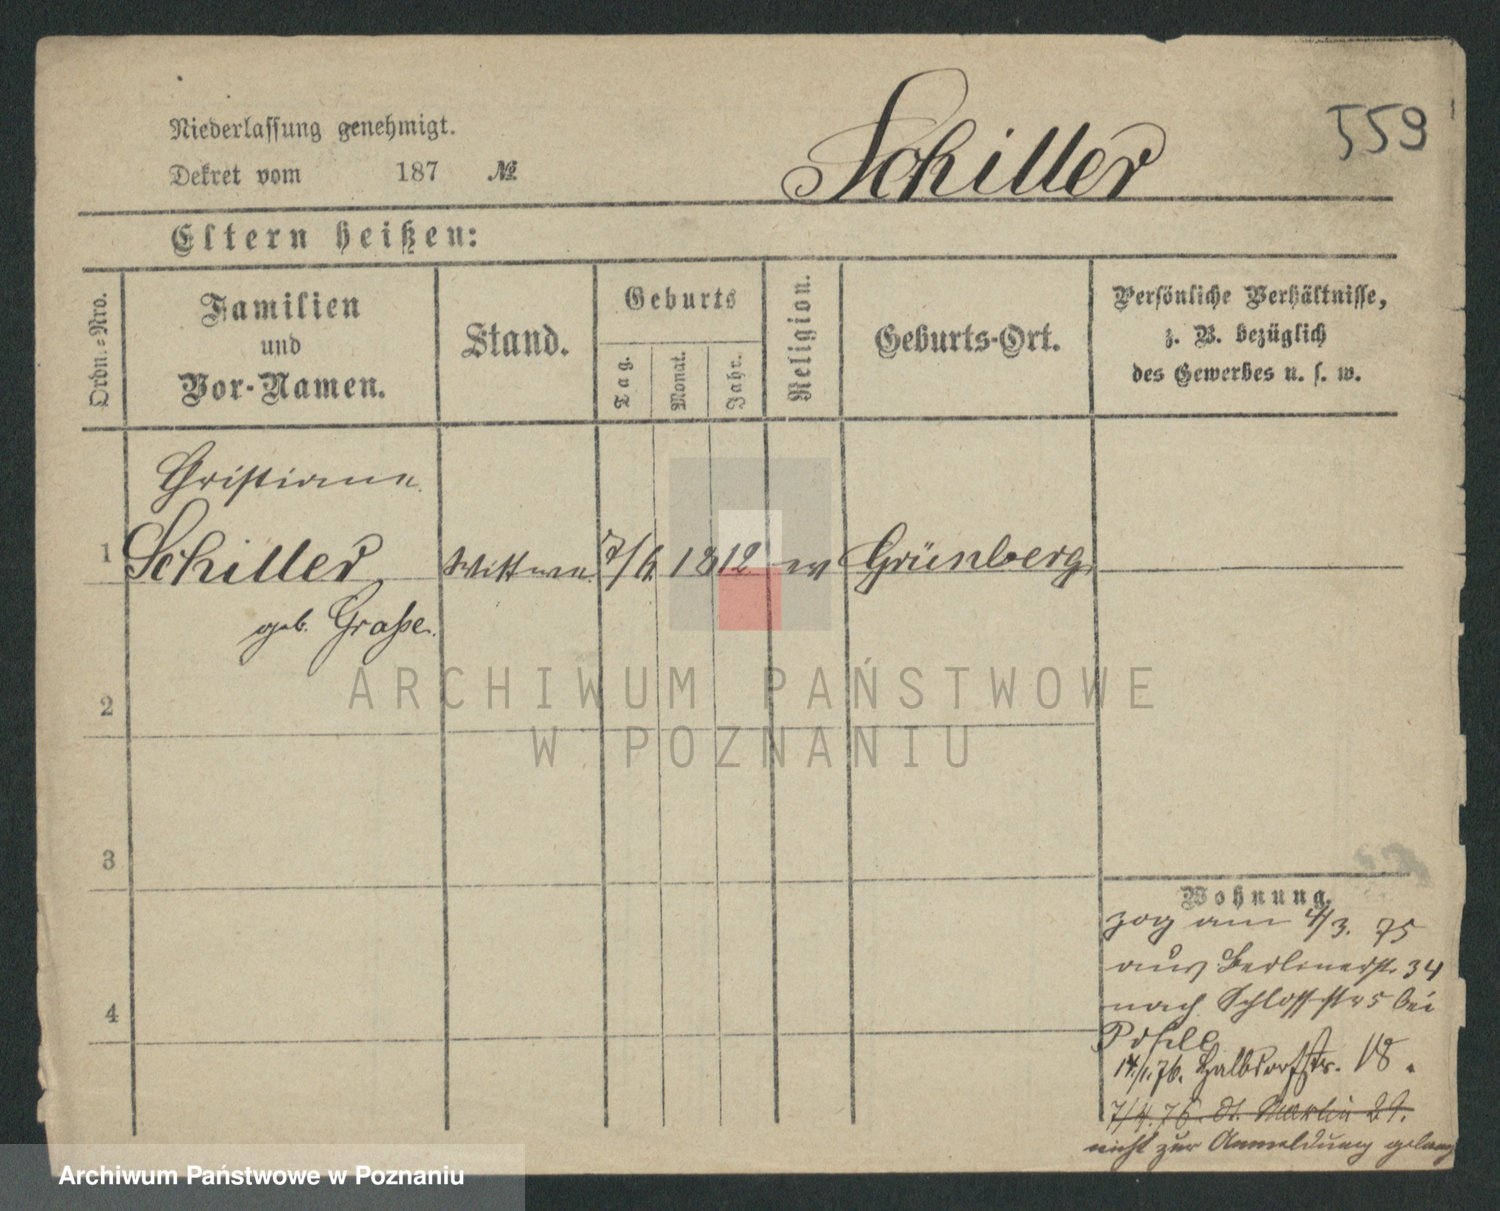 559
Niederlassung genehmigt.
Dekret vom 187 №
Schiller
Eltern heißen:
Ordn.=Nro.
Familien
und
Vor-Namen.
Stand.
Geburts
Tag.
Monat.
Jahr.
Religion.
Geburts-Ort.
Persönliche Verhältnisse,
z. B. bezüglich
des Gewerbes u. s. w.
Christiane
1 Schiller Wittwe 7/6 1812 ev Grünberg
geb. Graße.
2
3
4
Wohnung.
zog am 4/3. 75
aus Berlinerstr. 34
nach Schloßstr 5 bei
14./1.76. Halbdorfstr. 18.
7/4.76. St. Martin 29.
nicht zur Anmeldung
ARCHIWUM PAŃSTWOWE
W POZNANIU
Archiwum Państwowe w Poznaniu